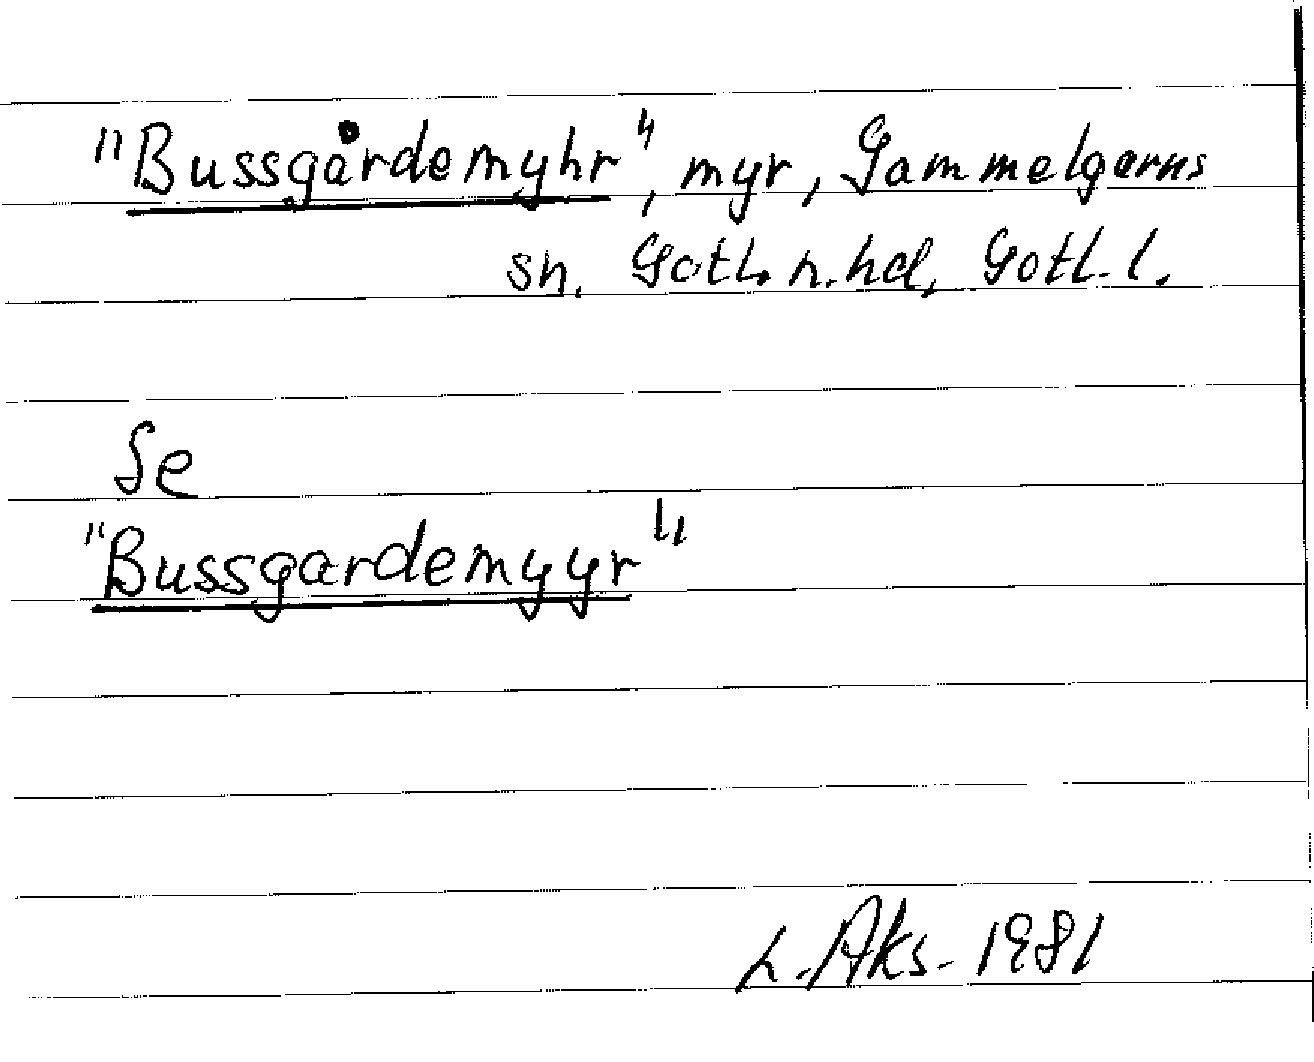 "Bussgårdemyhr", myr, Gammelgarns
sn. Gotl. n. hd, Gotl. l.
Se
"Bussgardemyyr"
L. Aks. 1981